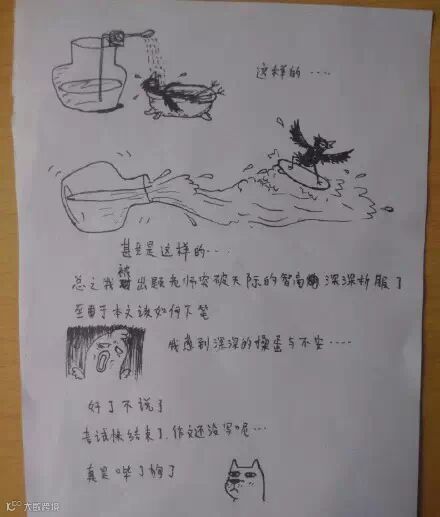 这样的....
甚至是这样的....
总之我被出题老师突破天际的智商深深折服了
至于本文该如何下笔
我感到深深的操蛋与不安....
好了不说了
考试快结束了,作文还没写呢...
真是哔了狗了
大数跨境